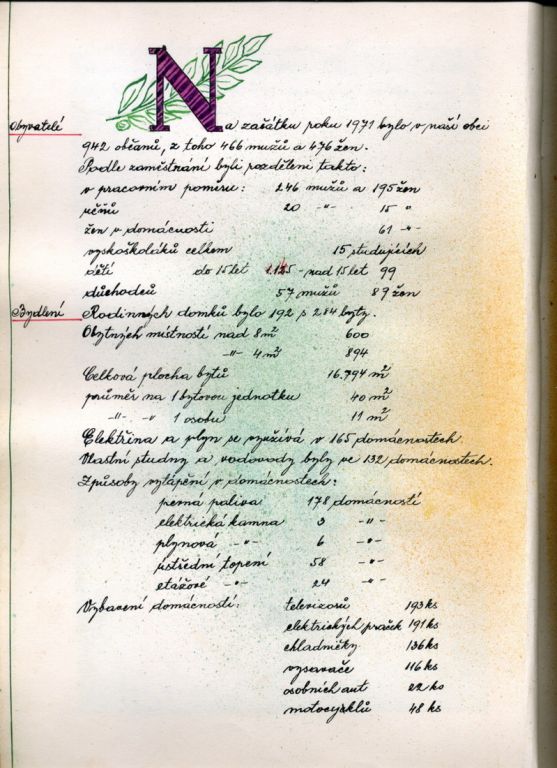 Obyvatelé
Na začátku roku 1971 bylo v naší obci
942 občanů, z toho 466 mužů a 476 žen.
Podle zaměstnání byli rozděleni takto:
v pracovním poměru: 246 mužů a 195 žen
učňů 20 -"- 15 "
žen v domácnosti 61 -"-
vysokoškoláků celkem 15 studujících
dětí do 15 let - nad 15 let 99
důchodců 57 mužů 89 žen
Bydlení
Rodinných domků bylo 192 s 284 byty.
Obytných místností nad 8 m² 600
-"- 4 m² 894
Celková plocha bytů 16.794 m²
průměr na 1 bytovou jednotku 40 m²
-"- -"- 1 osobu 11 m²
Elektřina a plyn se využívá v 165 domácnostech.
Vlastní studny a vodovody byly ve 132 domácnostech.
Způsoby vytápění v domácnostech:
pevná paliva 178 domácností
elektrická kamna 3 -"-
plynová -"- 6 -"-
ústřední topení 58 -"-
etážové -"- 24 -"-
Vybavení domácností: televizorů 193 ks
elektrických praček 191 ks
chladničky 136 ks
vysavače 116 ks
osobních aut 22 ks
motocyklů 48 ks